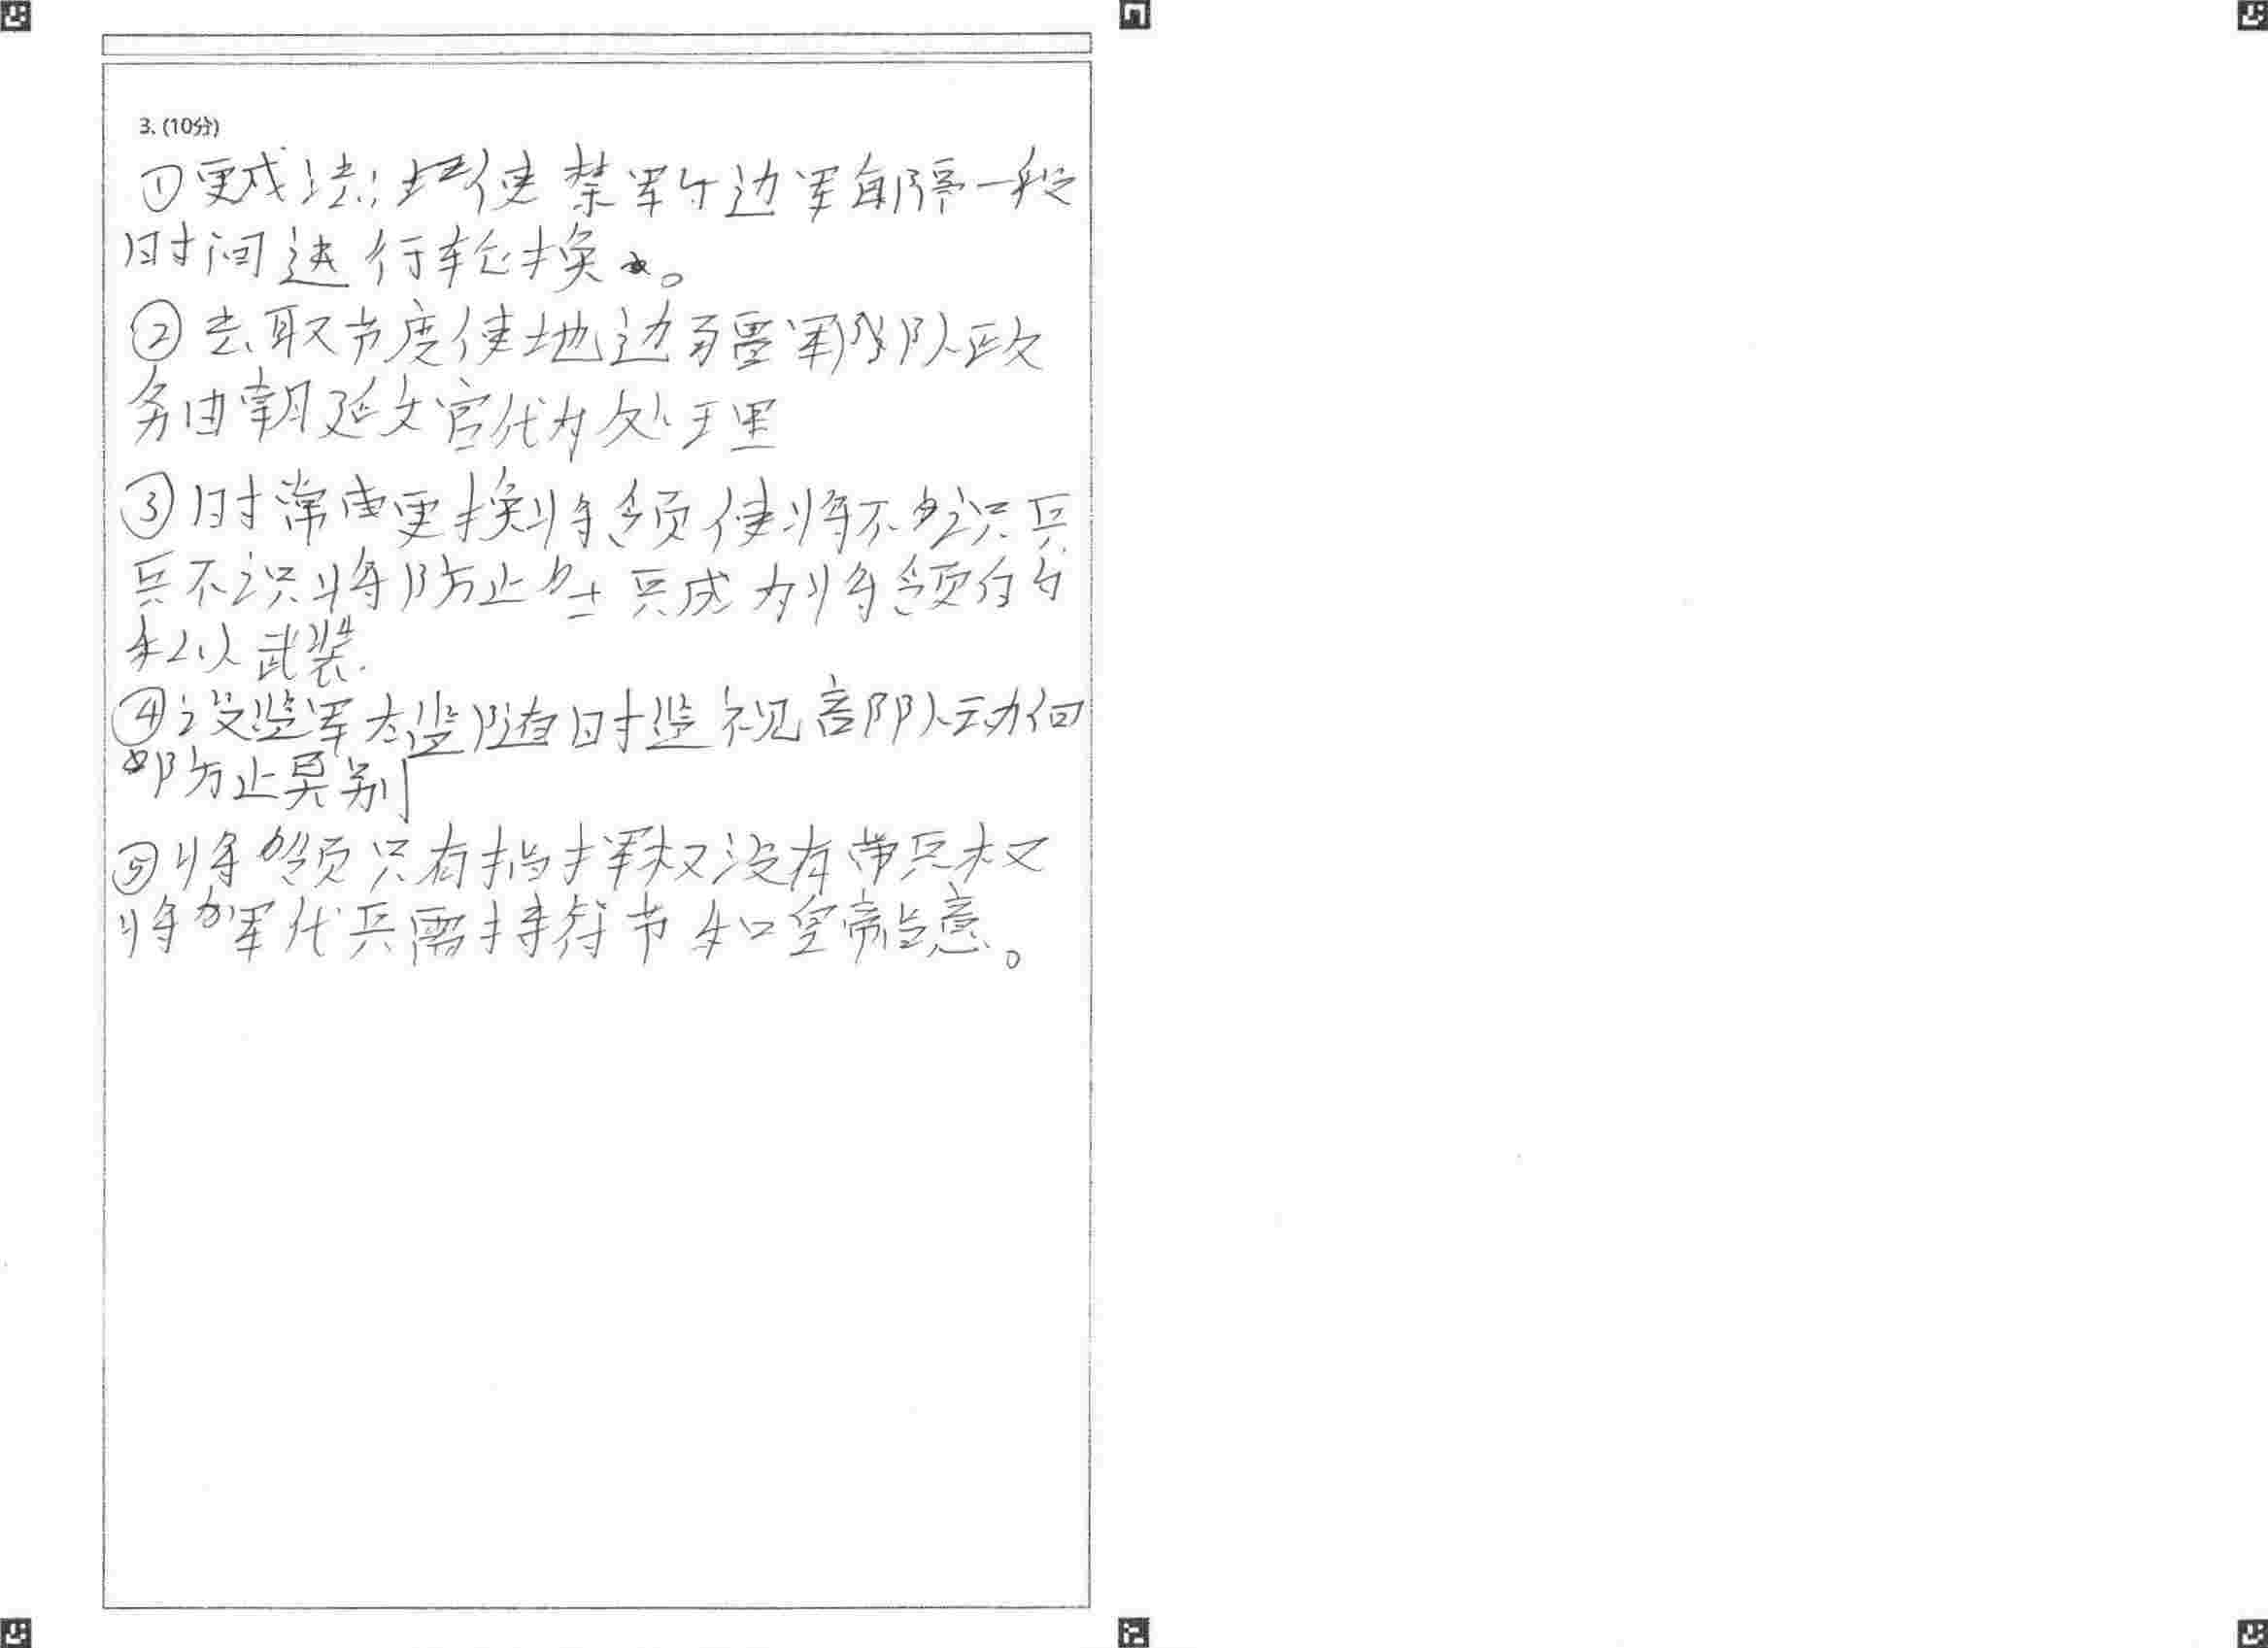 3、(10分)
①更戍法:使禁军与边军每隔一段
时间进行轮换。
②去取节度使地边疆军队政
务由朝廷文官代为处理
③时常更换将领使将不识兵
兵不识将防止士兵成为将领的
私人武装.
④设监军太监随时监视部队动向
防止异
⑤将领只有指挥权没有带兵权
将军代兵需持符节和皇帝旨意。